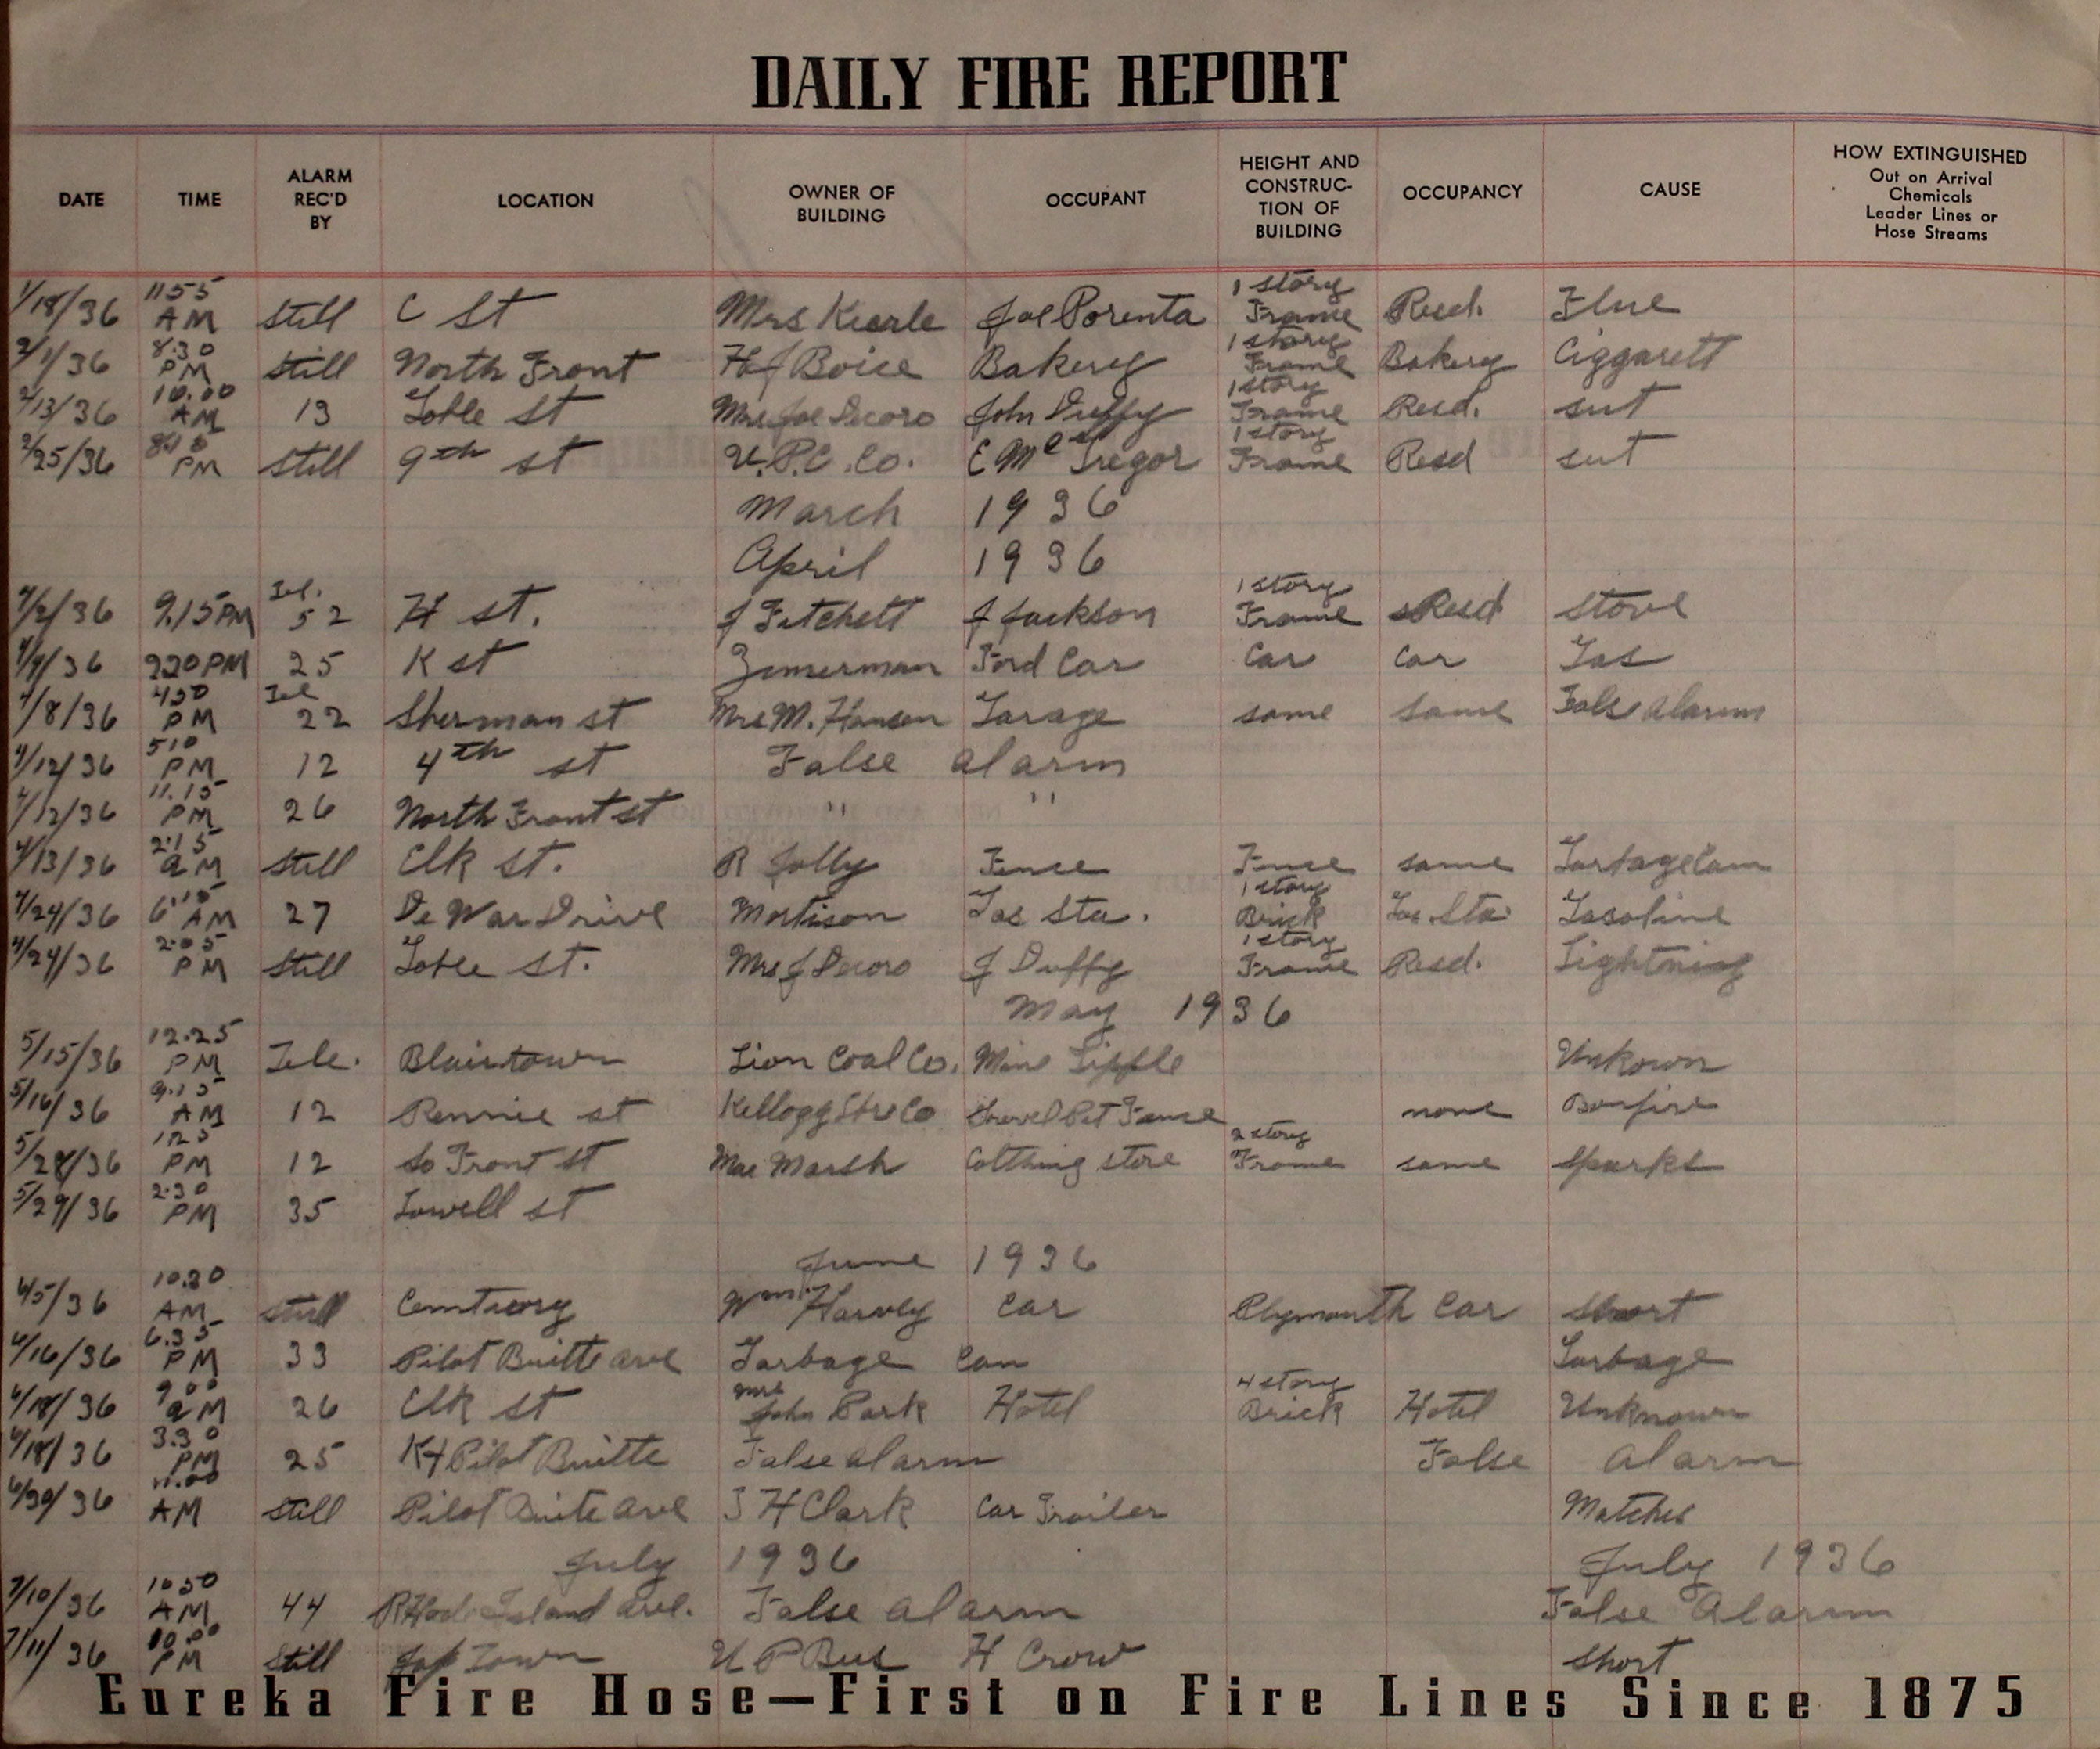 DAILY FIRE REPORT
DATE TIME ALARM REC'D BY LOCATION OWNER OF BUILDING OCCUPANT HEIGHT AND CONSTRUC-TION OF BUILDING OCCUPANCY CAUSE HOW EXTINGUISHED Out on Arrival Chemicals Leader Lines or Hose Streams
1/18/36 11 55 AM Still C St Mrs Kierle Joe Porenta 1 story Frame Resd. Flue
2/1/36 8.30 PM Still North Front H J Boice Bakery 1 story Frame Bakery Ciggarett
2/13/36 10.00 AM 13 Goble St Mrs Joe Decoro John Duffy 1 story Frame Resd. sut
2/25/36 PM Still 9th st U.P.C. Co. E McGregor 1 story Frame Resd sut
March 1936
April 1936
4/2/36 9.15 PM Tel. 52 H st. J Fitchett J Jackson 1 story Frame Resd stove
4/9/36 920 PM 25 K st Zimerman Ford Car Car Car Gas
4/8/36 430 PM Tel 22 Sherman st Mrs M. Hanson Garage same same False Alarm
4/12/36 510 PM 12 4th st False alarm
4/12/36 11.15 PM 26 North Front st " "
4/13/36 2.15 AM Still Elk St. R Jolly Fence Fence same
4/24/36 6.15 AM 27 De War Drive Mortison Gas Sta. 1 story Brick Gas Sta. Gasoline
4/24/36 2.05 PM Still Goble St. Mrs J Decoro J Duffy 1 story Frame Resd. Lightning
May 1936
5/15/36 12.25 PM Tele. Blairtown Lion Coal Co. Mine Tipple Unkown
5/16/36 9.15 AM 12 Rennie st Kellogg Gravel Pit Fence none Bonfire
5/28/36 125 PM 12 So Front st Mae Marsh Colthing store 2 story Frame same sparks
5/29/36 2.30 PM 35 Lowell st
June 1936
6/5/36 10.30 AM still Wm. Harvey Car Plymouth Car Short
6/16/36 6.35 PM 33 Pilot Buitte ave Garbage Can Garbage
6/18/36 9 00 AM 26 Elk st Mrs John Park Hotel 4 story Brick Hotel Unknown
6/18/36 3.30 PM 25 K+Pilot Buitte False alarm False alarm
6/30/36 11.00 AM Still Pilot Buite ave H Clark Car Trailer Matches
July 1936 July 1936
7/10/36 10 50 AM 44 Rhode Island ave. False alarm False Alarm
7/11/36 10.00 PM Still Jap Town U P Bus H Crow Short
Eureka Fire Hose—First on Fire Lines Since 1875